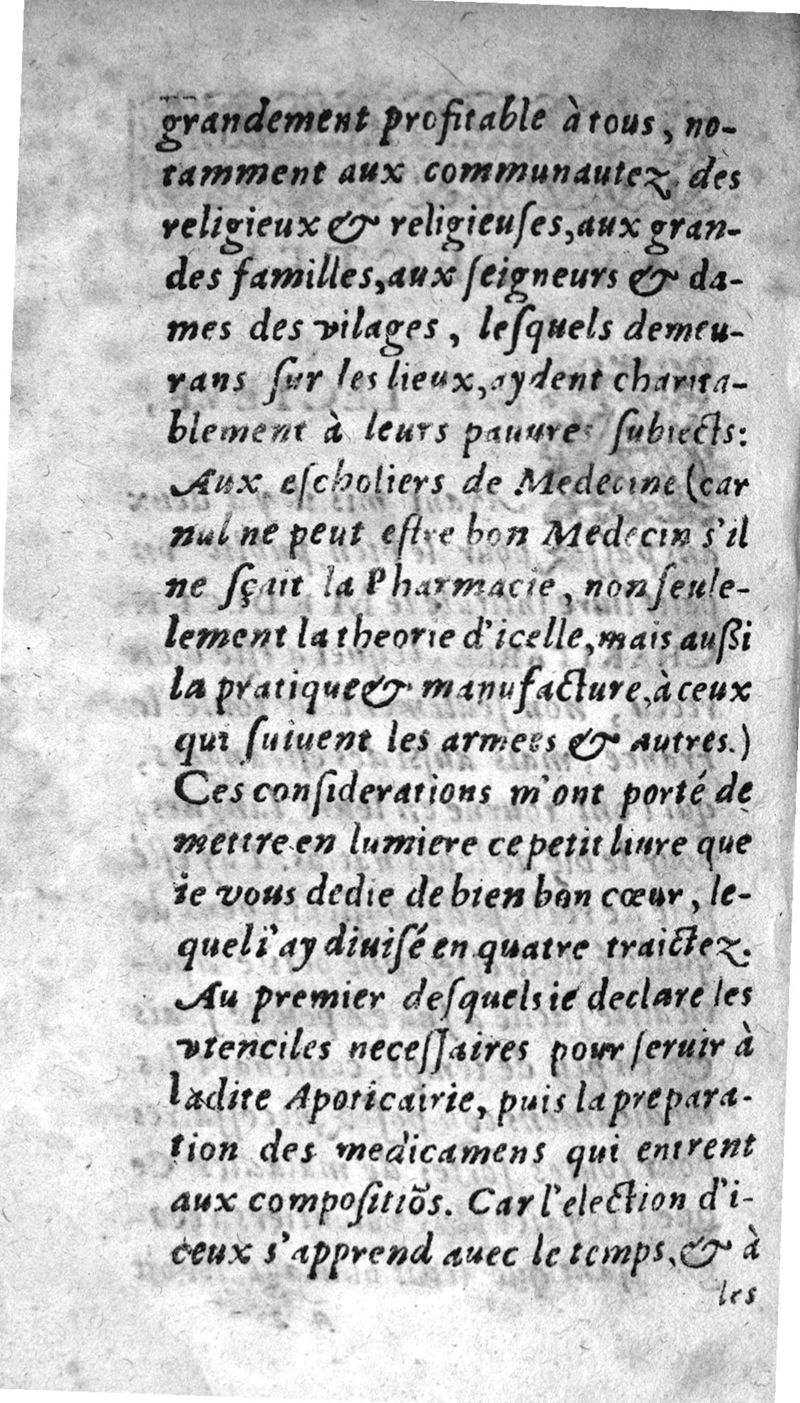 grandement profitable à tous, no-
tamment aux communautez des
religieux & religieuſes, aux gran-
des familles, aux ſeigneurs & da-
mes des vilages, leſquels demeu-
rans ſur les lieux, aydent charita-
blement à leurs pauures ſubiects:
Aux eſcholiers de Medecine (car
nul ne peut eſtre bon Medecin s'il
ne ſçait la Pharmacie, non ſeule-
lement la theorie d'icelle, mais außi
la pratique & manufacture, à ceux
qui ſuiuent les armees & autres.)
Ces conſiderations m'ont porté de
mettre en lumiere ce petit liure que
ie vous dedie de bien bon cœur, le-
quel i'ay diuiſé en quatre traictez.
Au premier deſquels ie declare les
vtenciles neceſſaires pour ſeruir à
ladite Apoticairie, puis la prepara-
tion des medicamens qui entrent
aux compoſitiõs. Car l'election d'i-
ceux s'apprend auec le temps, & à
les